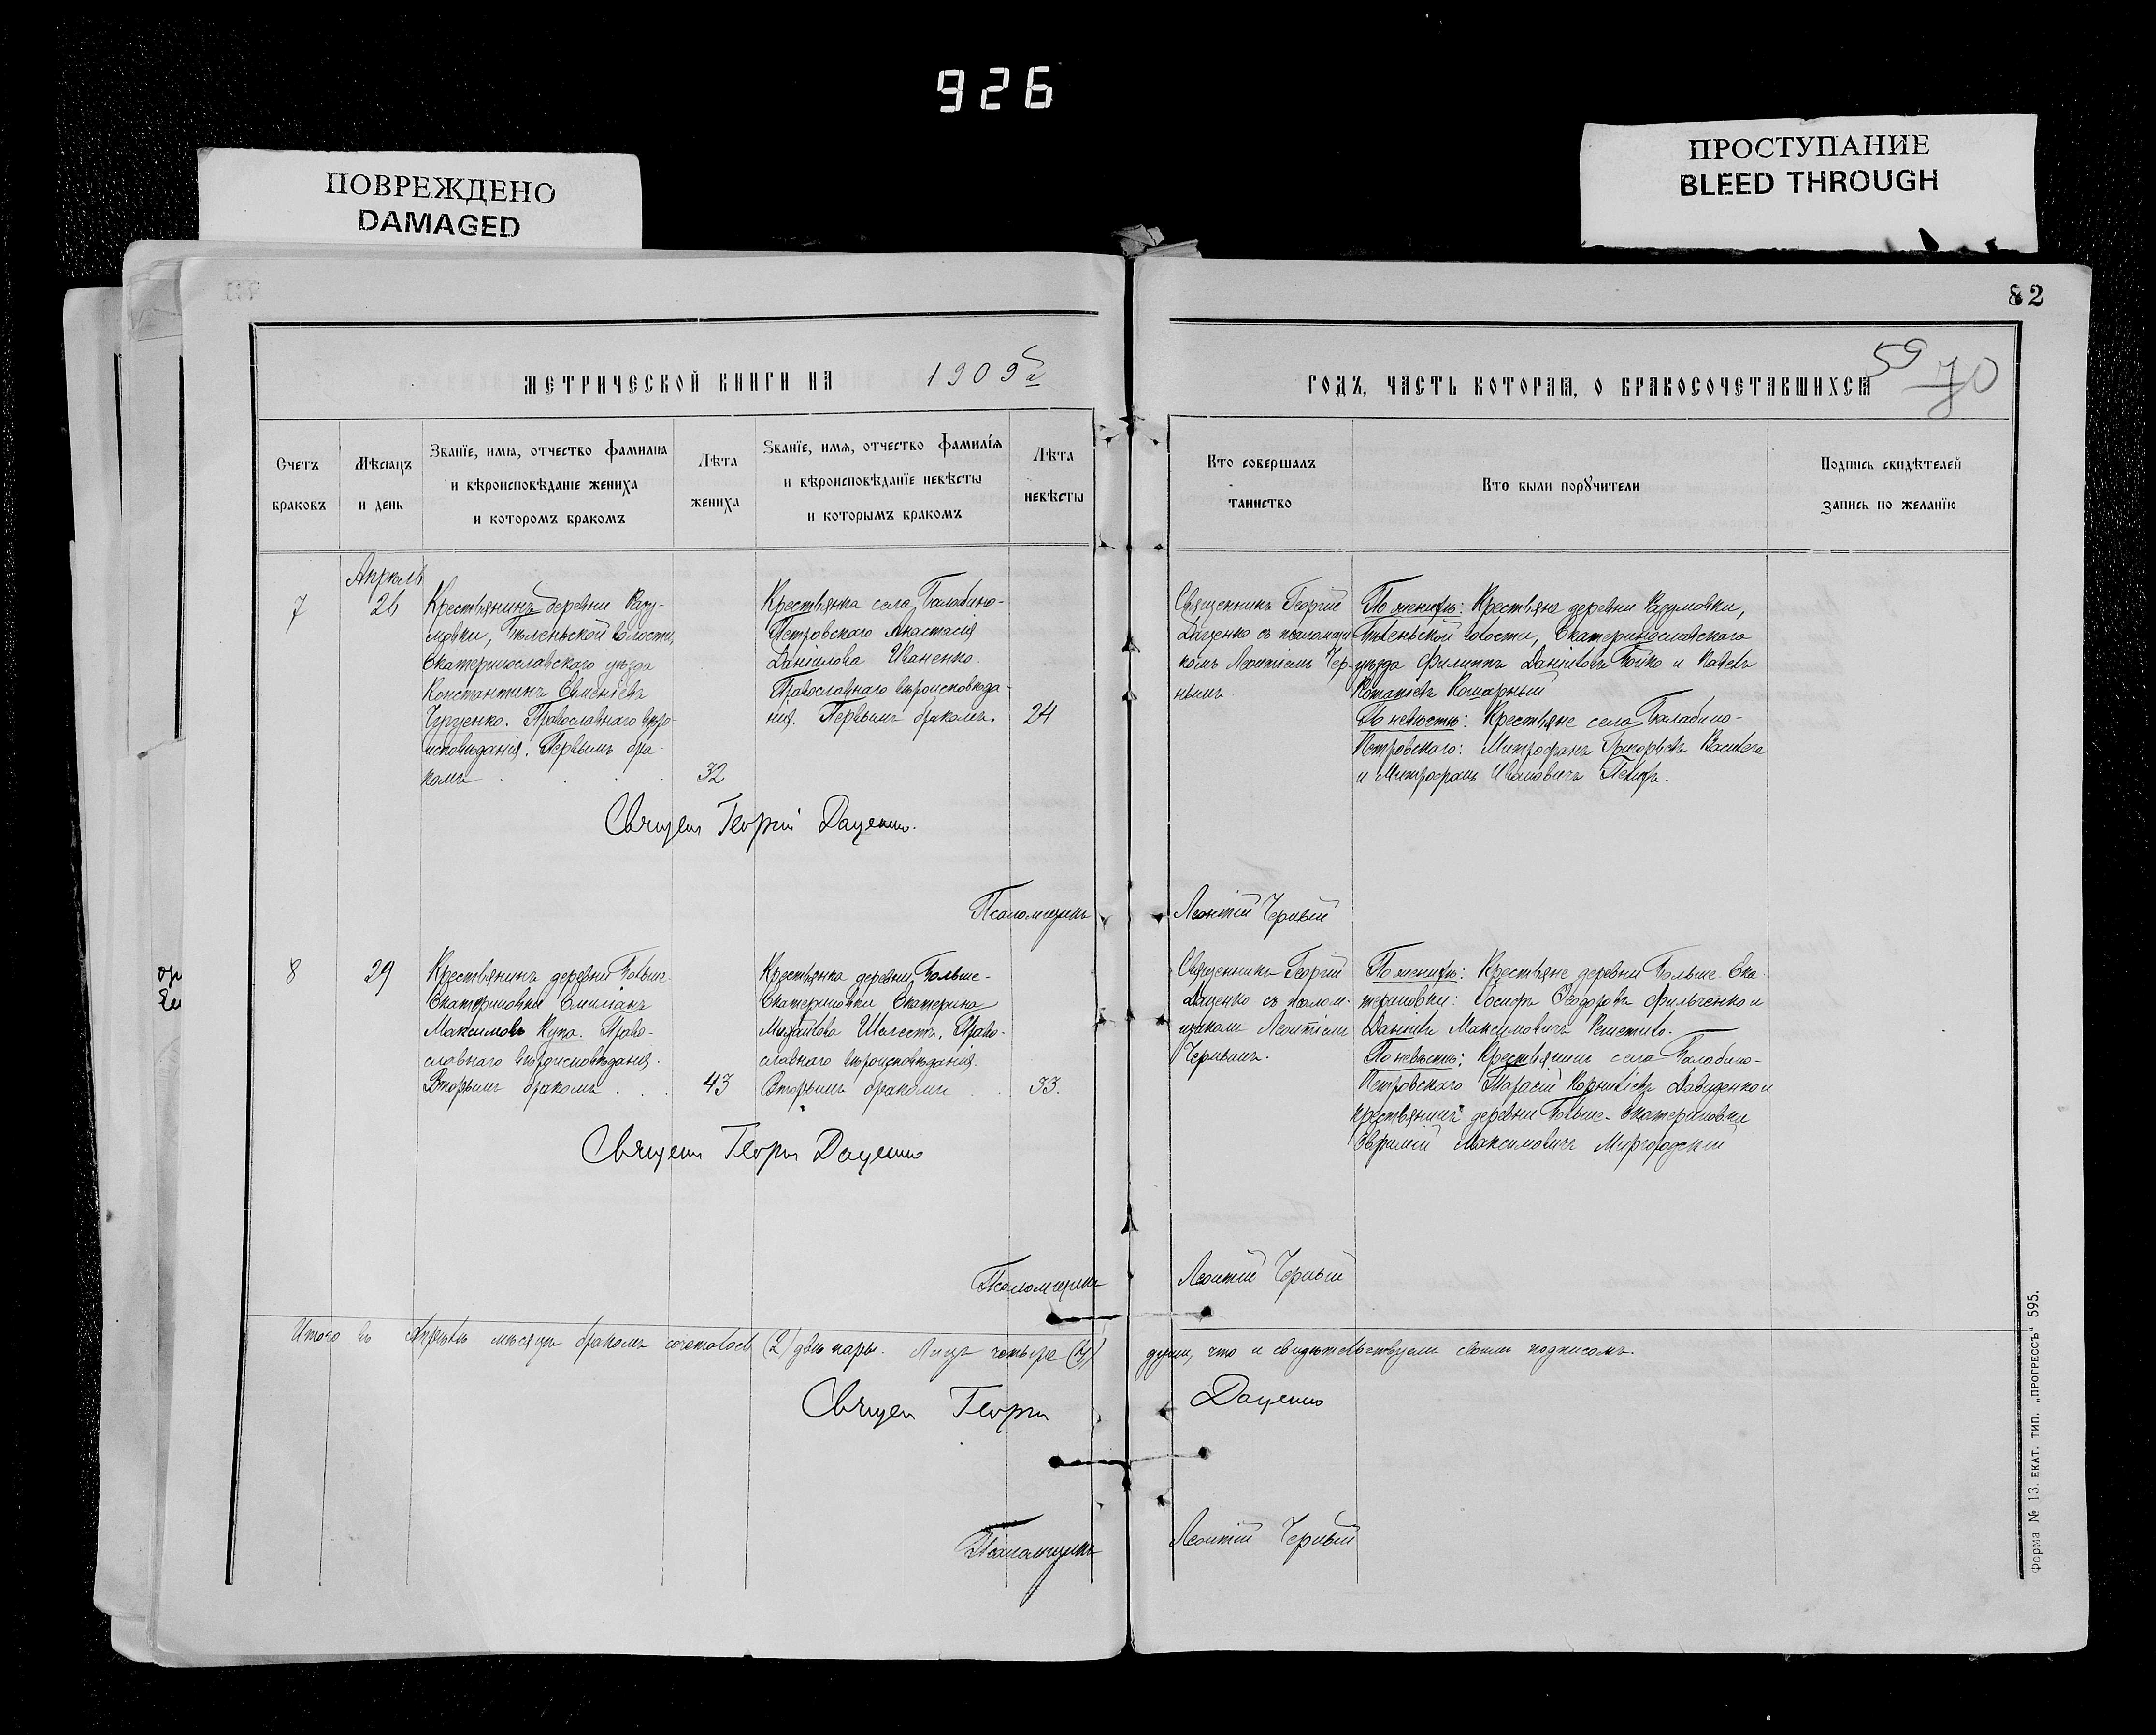 926
ПОВРЕЖДЕНО
DAMAGED
ПРОСТУПАНИЕ
BLEED THROUGH
82
59
70
МЕТРИЧЕСКОЙ КНИГИ НА 1909й
ГОДЪ, ЧАСТЬ КОТОРАЯ, О БРАКОСОЧЕТАВШИХСЯ
Счетъ
браковъ
Мѣсяцъ
и день
Званіе, имя, отчество фамилія
и вѣроисповѣданіе жениха
и которомъ бракомъ
Лѣта
жениха
Званіе, имя, отчество фамилія
и вѣроисповѣданіе невѣсты
и которымъ бракомъ
Лѣта
невѣсты
Кто совершалъ
таинство
Кто были поручители
Подпись свидѣтелей
запись по желанію
Апрель
7
26
Крестьянинъ деревни Разу-
мовки,
волости,
Екатеринославскаго уѣзда
Константинъ
Православнаго вѣро-
исповѣданія. Первымъ бра-
комъ
32
Крестьянка села Балабино-
Петровского Анастасія
Даніилова Иваненко.
Православнаго вѣроисповѣда-
нія. Первымъ бракомъ.
24
Священникъ Георгій
Даценко съ псаломщи-
комъ Леонтіемъ Чер-
нымъ
По женихѣ: Крестьяне деревни Разумовки,
волости, Екатеринославскаго
уѣзда Филиппъ Даніиловъ Бойко и Павелъ
Комарный
По невѣстѣ: Крестьяне села Балабино-
Петровского: Митрофанъ Григорьевъ
и Митрофанъ Ивановичъ
Священ Георгій Даценко.
Псаломщикъ
Леонтій Черный
8
29
Крестьянинъ деревни Больше-
Екатериновки Емиліанъ
Максимовъ Куца. Право-
славнаго вѣроисповѣданія.
Вторымъ бракомъ
43
Крестьянка деревни Больше-
Екатериновки Екатерина
Михайлова Шелестъ. Право-
славнаго вѣроисповѣданія.
Вторымъ бракомъ
33.
Священникъ Георгій
Даценко съ псалом-
щикомъ Леонтіемъ
Чернымъ.
По женихѣ: Крестьяне деревни Больше-Ека-
териновки: Іосифъ Ѳеодоровъ Фильченко и
Даніилъ Максимовичъ Решетило.
По невѣстѣ: Крестьянинъ села Балабино-
Петровского Тарасій Корниліевъ Давиденко и
крестьянинъ деревни Больше-Екатериновки
Евфимій Максимовичъ Миргородскій
Священ Георгій Даценко
Псаломщикъ
Леонтій Черный
Итого въ Апрѣлѣ мѣсяцѣ бракомъ сочеталось (2) двѣ пары. Лицъ четыре (4)
души, что и свидѣтельствуемъ своимъ подписомъ.
Священ Георгій
Даценко
Псаломщикъ
Леонтій Черный
Форма № 13. ЕКАТ. ТИП. „ПРОГРЕССЪ" 595.